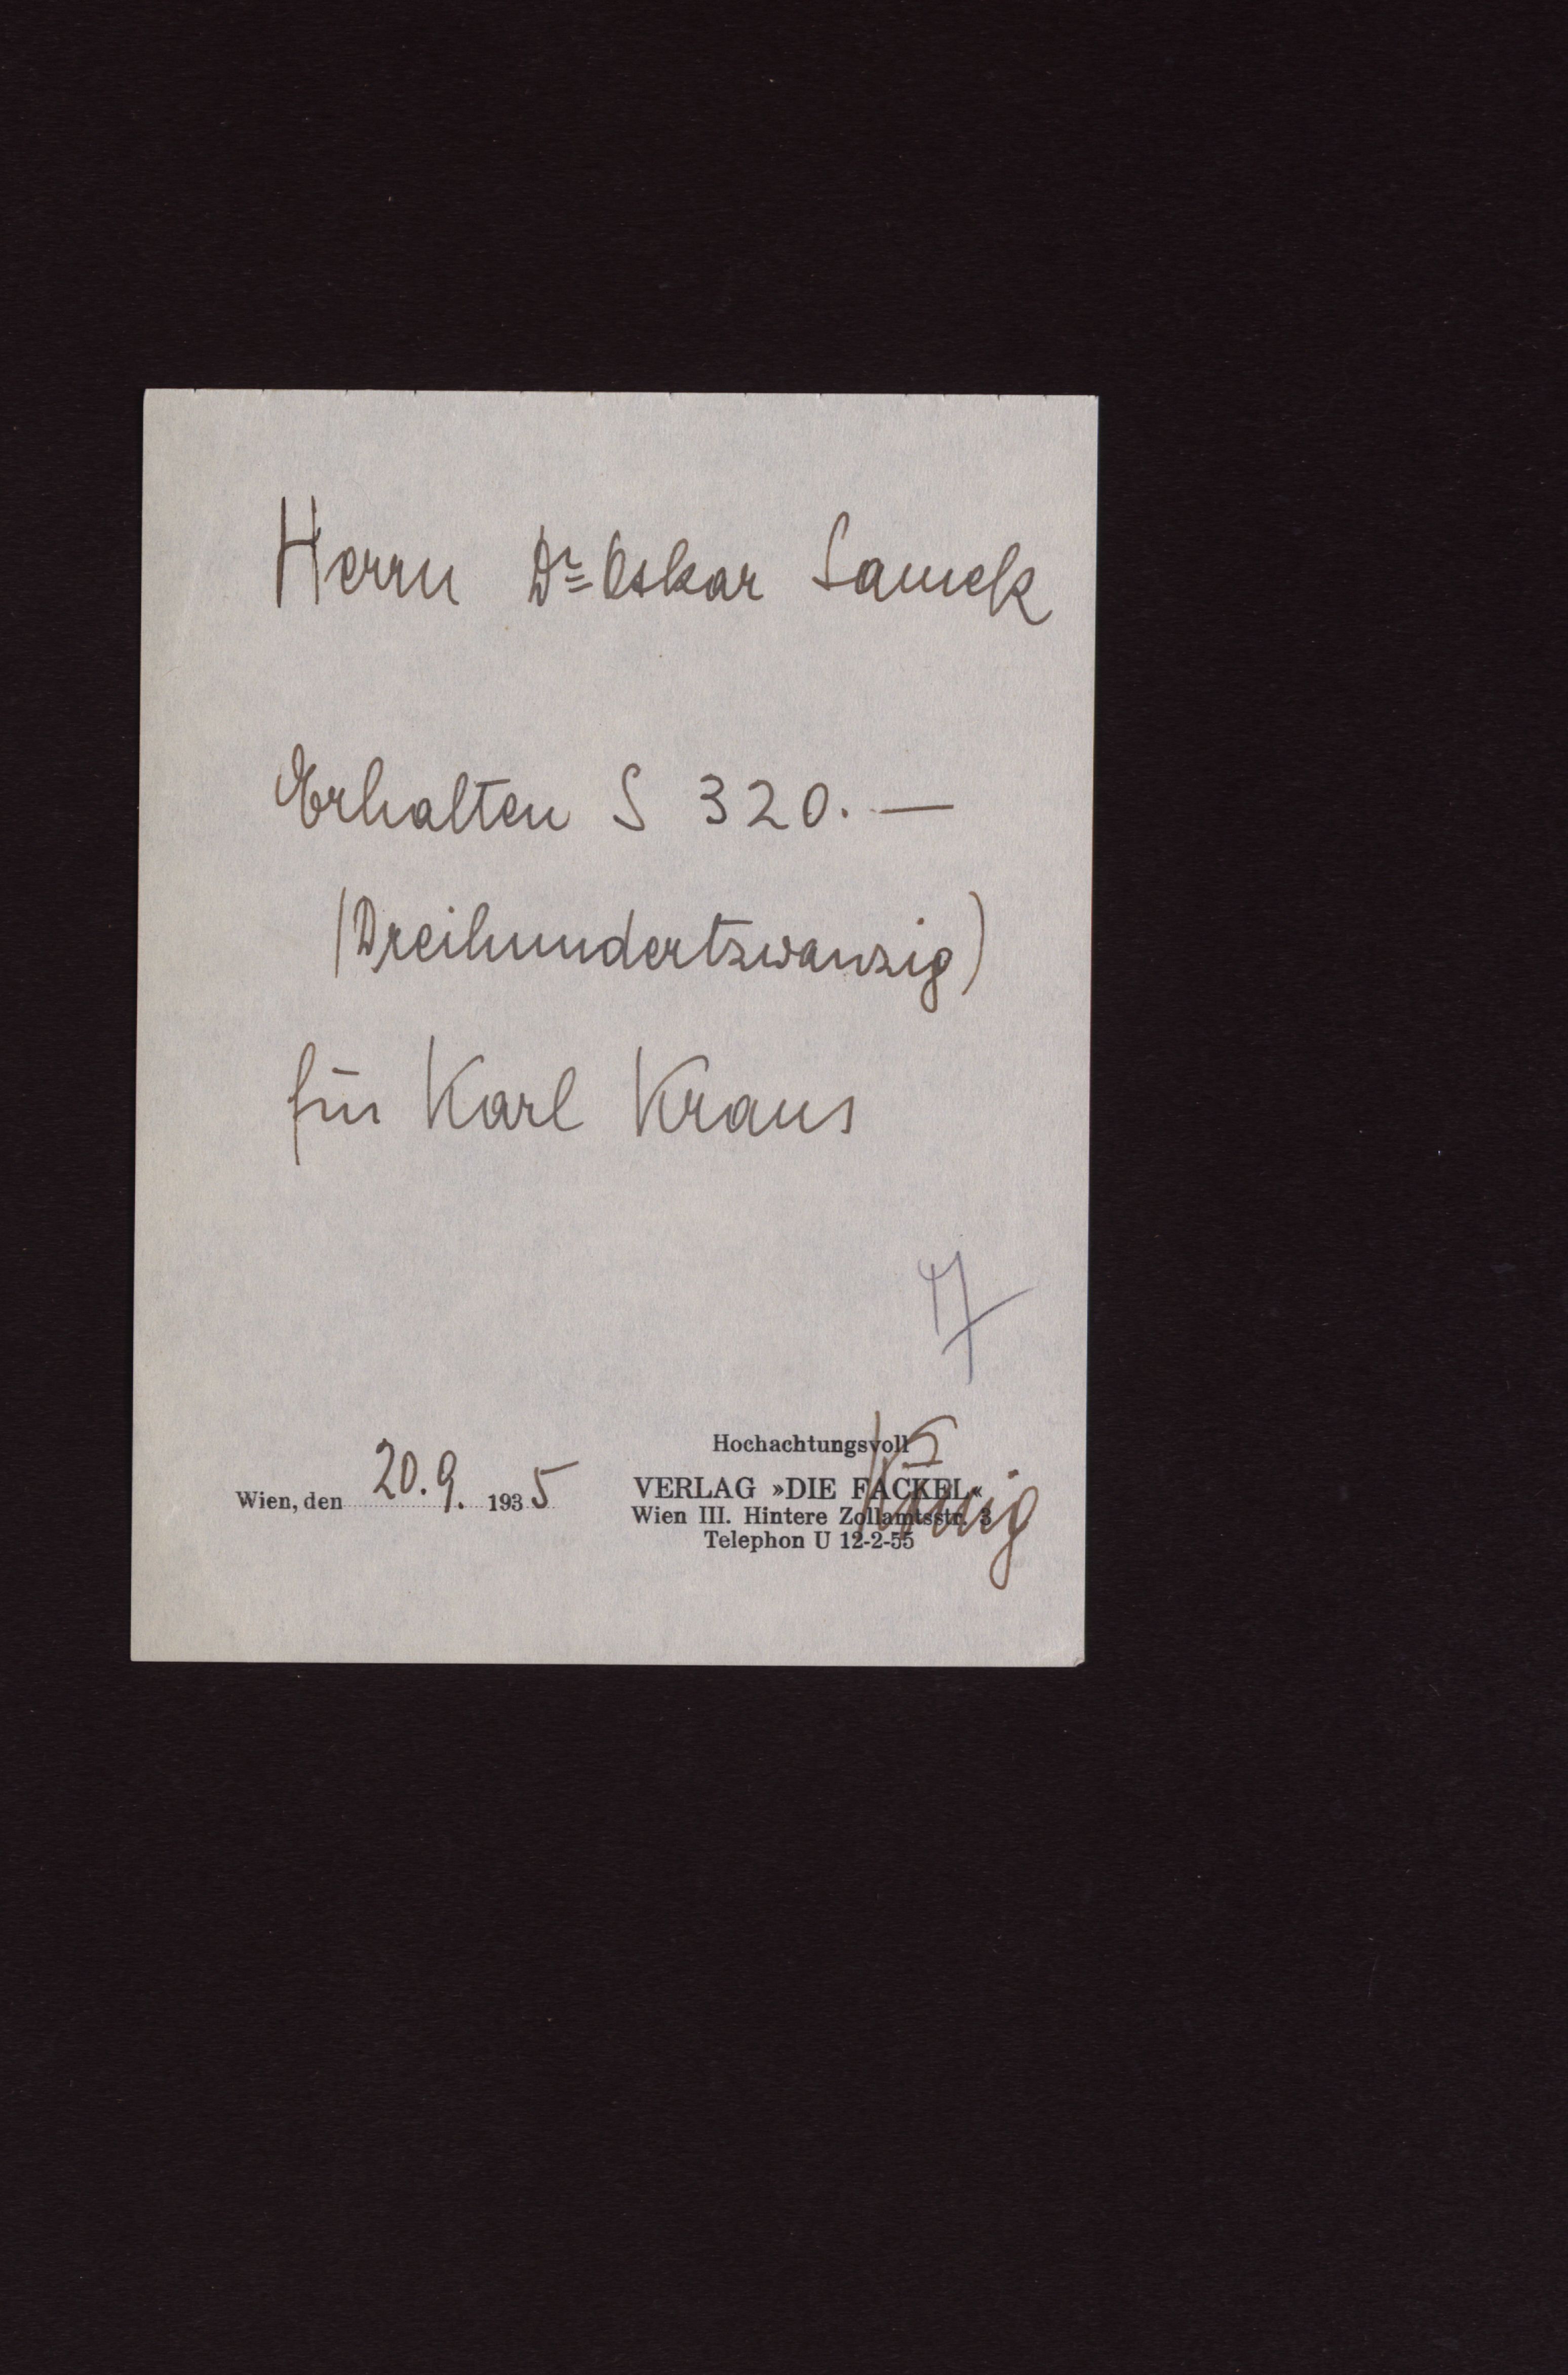 Herrn Dr Oskar Samek
Erhalten S 320.—
(Dreihundertzwanzig)
für Karl Kraus
17
Hochachtungsvoll
VERLAG »DIE FACKEL«
Wien III. Hintere Zollamtsstr. 3
Telephon U 12-2-55
König
Wien, den 20. 9. 1935